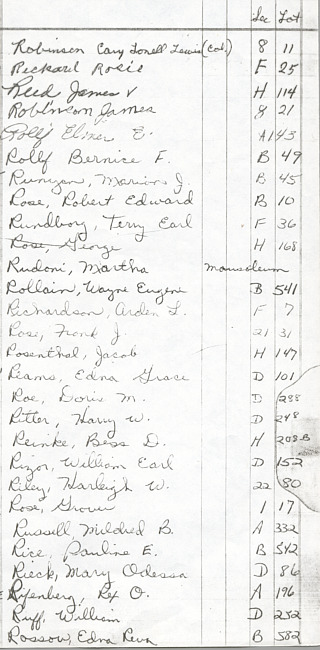 Sec Lot
Robinson Cary Lonell Lewis (Col.) 8 11
Rickard Rosie F 25
Reed James V H 114
Robinson James 8 21
Rolf Elmer E. A 143
Rolf Bernice F. B 49
Runyan, Marion J. B 45
Rose, Robert Edward B 10
Rundborg, Terry Earl F 36
Rose, George H 168
Rudoni, Martha mausoleum
Rollain, Wayne Eugene B 541
Richardson, Arden L. F 7
Rose, Frank J. 21 31
Rosenthal, Jacob H 147
Reams, Edna Grace D 101
Roe, Doris M. D 288
Ritter, Harry W. D 248
Reinke, Bess D. H 208B
Rizor, William Earl D 152
Riley, Harleigh W. 22 80
Rose, Grover 1 17
Russell Mildred B. A 332
Rice, Pauline E. B 542
Rieck, Mary Odessa D 86
Ryenberg, Rex O. A 196
Ruff, William D 252
Rossow, Edna Reva B 582